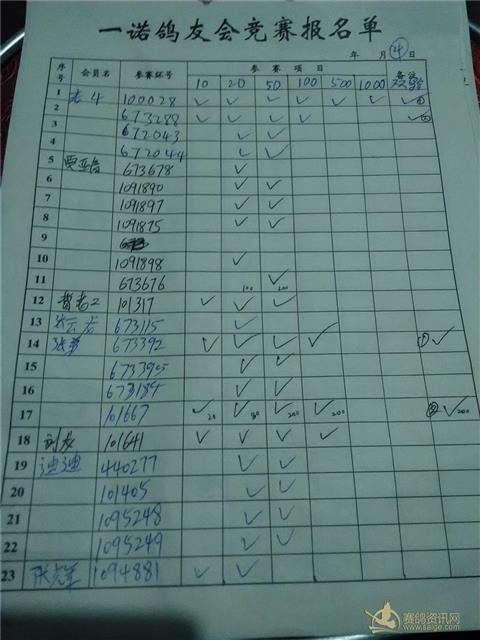 一诺鸽友会竞赛报名单
年 月 ④ 日
序号 会员名 参赛环号 参赛项目 备注
10 20 50 100 500 1000 双鸽
1 老牛 100028 ✓ ✓ ✓ ✓ ✓ ✓ ✓①
2 673288 ✓ ✓ ✓ ✓ ✓②
3 672043 ✓ ✓
4 672044 ✓ ✓
5 贾亚鲁 673678 ✓
6 1091890 ✓ ✓
7 1091897 ✓ ✓
8 1091875 ✓ ✓
9
10 1091898 ✓
11 673676 100 ✓200
12 101317 ✓ ✓ ✓
13 673115 ✓
14 张勇 673392 ✓ ✓ ✓ ✓ ①✓
15 673395 ✓ ✓
16 673184 ✓ ✓
17 101667 ✓20 ✓50 ✓200 ✓200 ②✓200
18 刘友 101641 ✓ ✓ ✓ ✓
19 迪迪 440277 ✓ ✓
20 101405 ✓ ✓
21 1095248 ✓ ✓
22 1095249 ✓ ✓
23 1094881 ✓ ✓
赛鸽资讯网
www.saige.com